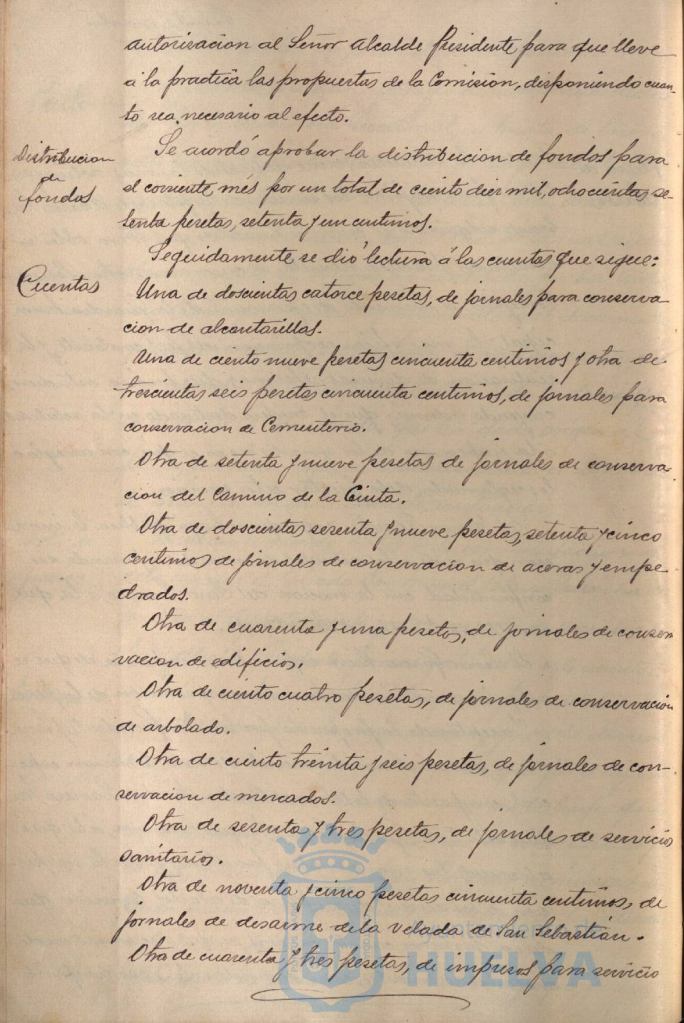 autorisacion al Señor Alcalde Presidente para que lleve
á la practica las propuestas de la Comision, disponiendo cuan-
to sea necesario al efecto.
Distribucion
de
fondos
Se acordó aprobar la distribucion de fondos para
el corriente mes por un total de ciento diez mil, ochocientas se-
senta pesetas, setenta y un centimos.
Cuentas
Seguidamente se dió lectura á las cuentas que sigue:
Una de doscientas catorce pesetas, de jornales para conserva-
cion de alcantarillas.
Una de ciento nueve pesetas cincuenta centimos y otra de
trescientas seis pesetas cincuenta centimos, de jornales para
conservacion de Cementerio.
Otra de setenta y nueve pesetas de jornales de conserva-
cion del Camino de la Cinta.
Otra de doscientas sesenta y nueve pesetas, setenta y cinco
centimos de jornales de conservacion de aceras y empe-
drados.
Otra de cuarenta y una pesetas, de jornales de conser-
vacion de edificios.
Otra de ciento cuatro pesetas, de jornales de conservación
de arbolado.
Otra de ciento treinta y seis pesetas, de jornales de con-
servacion de mercados.
Otra de sesenta y tres pesetas, de jornales de servicios
sanitarios.
Otra de noventa y cinco pesetas cincuenta centimos, de
jornales de desarme de la velada de San Sebastián.
Otra de cuarenta y tres pesetas, de impresos para servicio
HUELVA